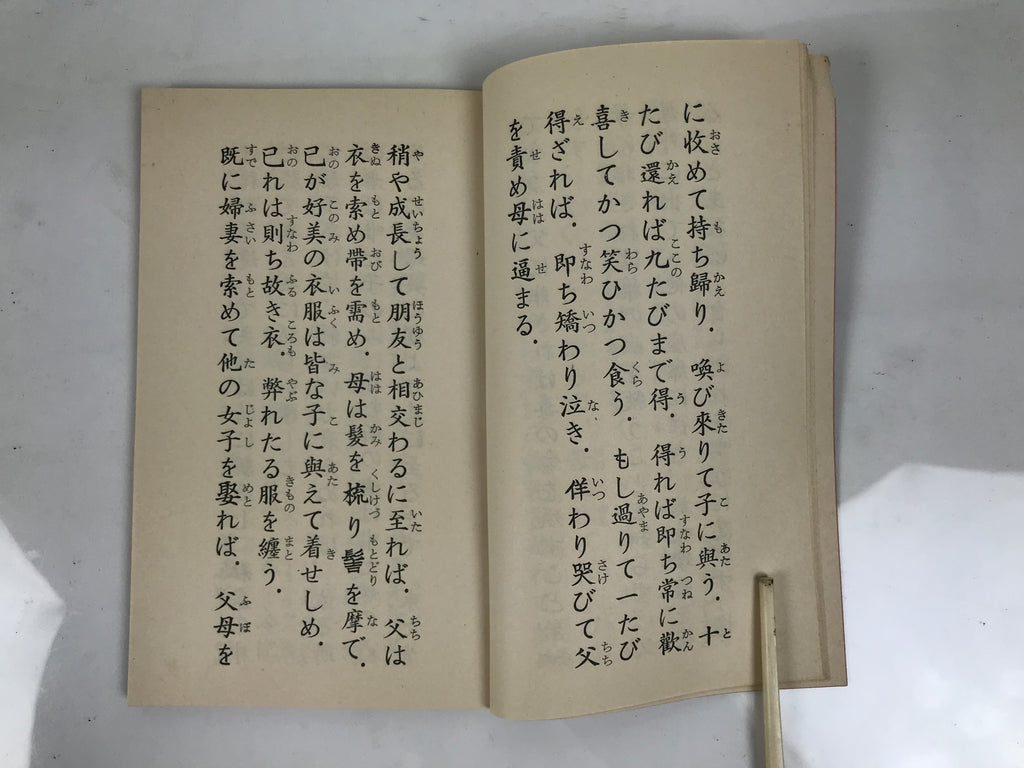 に收めて持ち歸り．喚び來りて子に與う．十
たび還れば九たびまで得．得れば即ち常に歡
喜してかつ笑ひかつ食う．もし過りて一たび
得ざれば．即ち矯わり泣き．佯わり哭びて父
を責め母に逼まる．
稍や成長して朋友と相交わるに至れば．父は
衣を索め帶を需め．母は髮を梳り髻を摩で．
己が好美の衣服は皆な子に與えて着せしめ．
己れは則ち故き衣．弊れたる服を纏う．
既に婦妻を索めて他の女子を娶れば．父母を